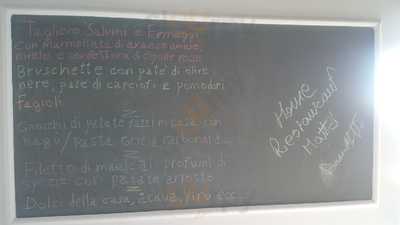 Tagliere Salumi e Formaggi
con marmellata di arance amare,
miele e confettura di cipolle rosse
Bruschette con patè di olive
nere, patè di carciofi e pomodori
fagioli
Gnocchi di patate fatti in casa con
ragù/Pasta
Filetto di maiale ai profumi di
con patate arrosto
Dolci della casa, acqua, vino ecc...
House
Restaurant